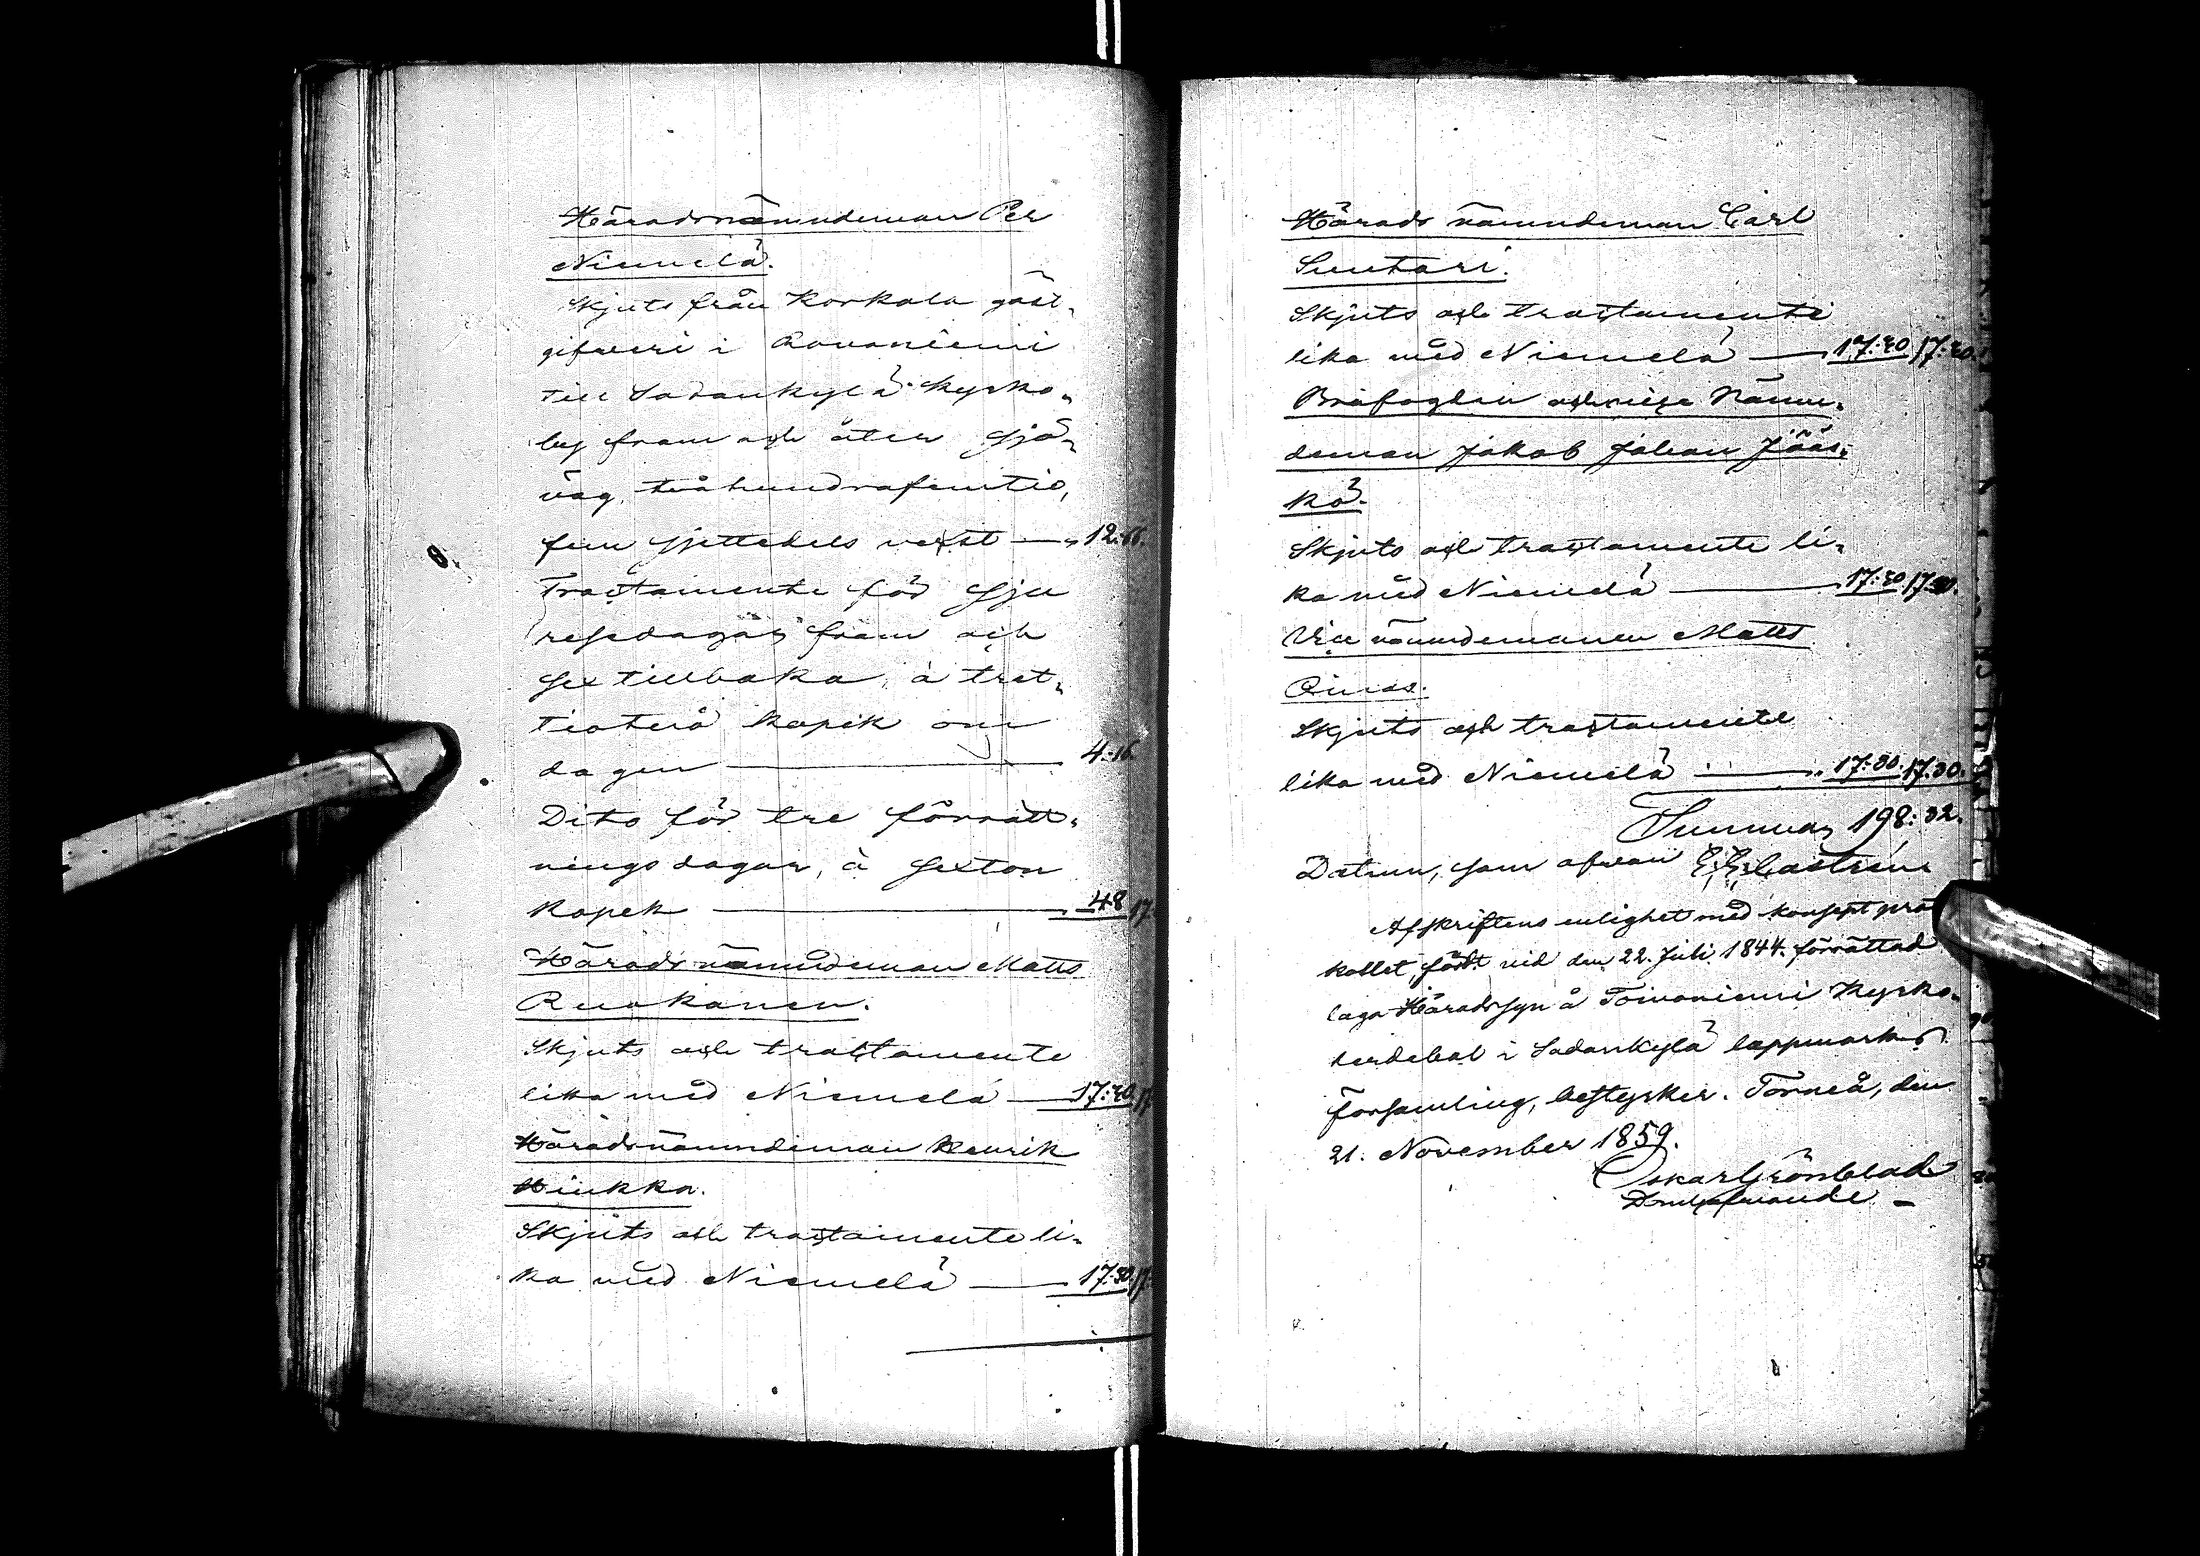 Häradsnämndeman Per
Niemelä.
Skjuts från Korkala gäst-
gifveri i Rovaniemi
till Sodankylä kyrko-
by fram och åter sjö-
väg, tvåhundrafemtio,
fem sjettedels verst — 12:66.
Tractamente för sju
resedagar fram och
sex tillbaka, à tret-
tiotvå kopek om
dagen — 4:16
Dito för tre förrätt-
nings dagar, à sexton
kopek — 48 17.
Häradsnämndeman Matts
Ruokanen.
Skjuts och tractamente
lika med Niemelä — 17:30
Häradsnämndeman Henrik
Hiukka.
Skjuts och tractamente li-
ka med Niemelä — 17:30.
Härads nämndeman Carl
Suutari.
Skjuts och tractamente
lika med Niemelä — 17:30 17:30.
Bröfogden och vice Näm-
deman Jakob Johan Jääs-
kö.
Skjuts och tractamente li-
ka med Niemelä — 17:30 17:30.
Vice nämndemanen Matts
Oinas.
Skjuts och tractamente
lika med Niemelä — 17:30. 17:30.
Summa, 198:32.
Datum, som ofvan E. E. Castrén
Afskriftens enlighet med konsept pro
kollet, fördt vid den 22. Juli 1844. förrättad
laga Häradssyn å Toivoniemi Kyrko-
herdebol i Sodankylä lappmarks
församling, bestyrker. Torneå, den
21. November 1859.
Oskar Grönblad
Domhafvande —